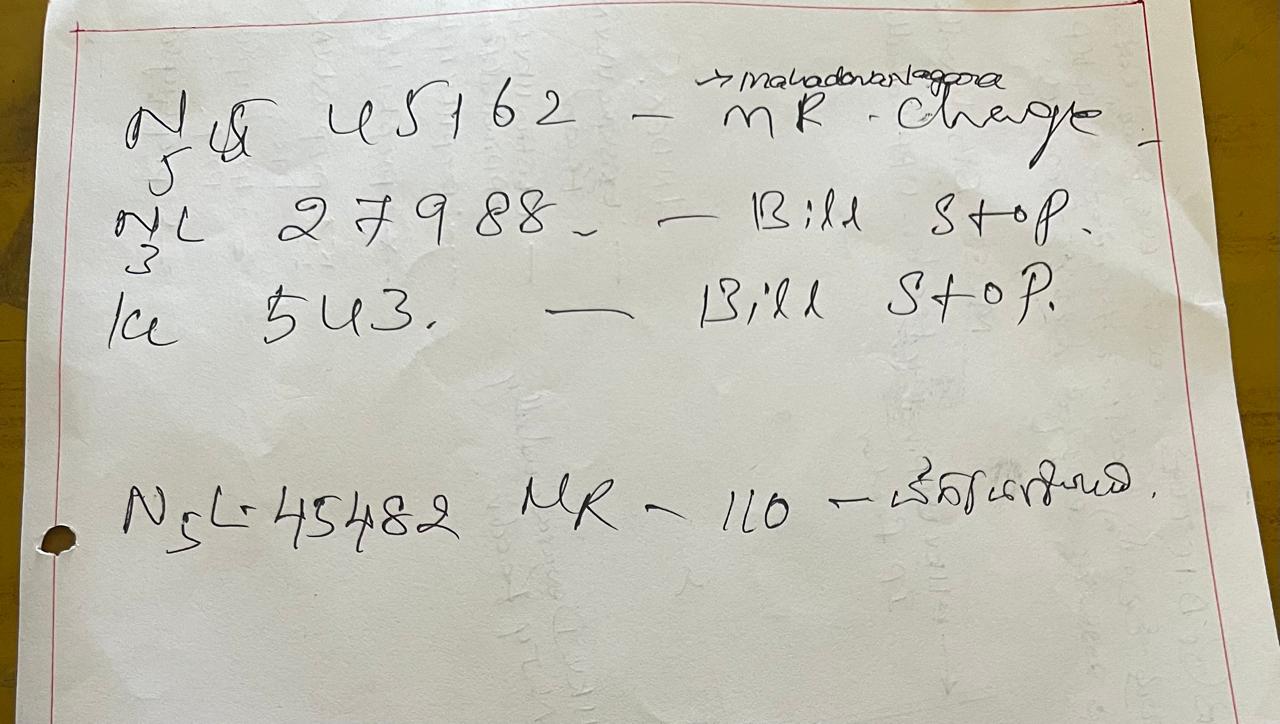 → mahadevanagara
N5L 45162 - MR. Change
N3L 27988. - Bill Stop.
KL 543. — Bill Stop.
N5L. 45482 MR - 110 -